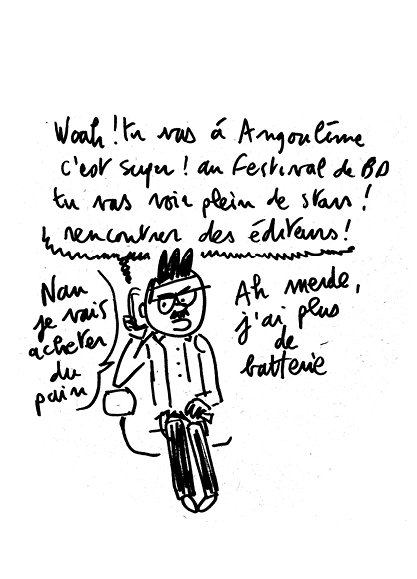 Woah ! tu vas à Angoulême
c'est super ! au Festival de BD
tu vas voir plein de stars !
rencontrer des éditeurs !
Nan
je vais
acheter
du
pain
Ah merde,
j'ai plus
de
batterie